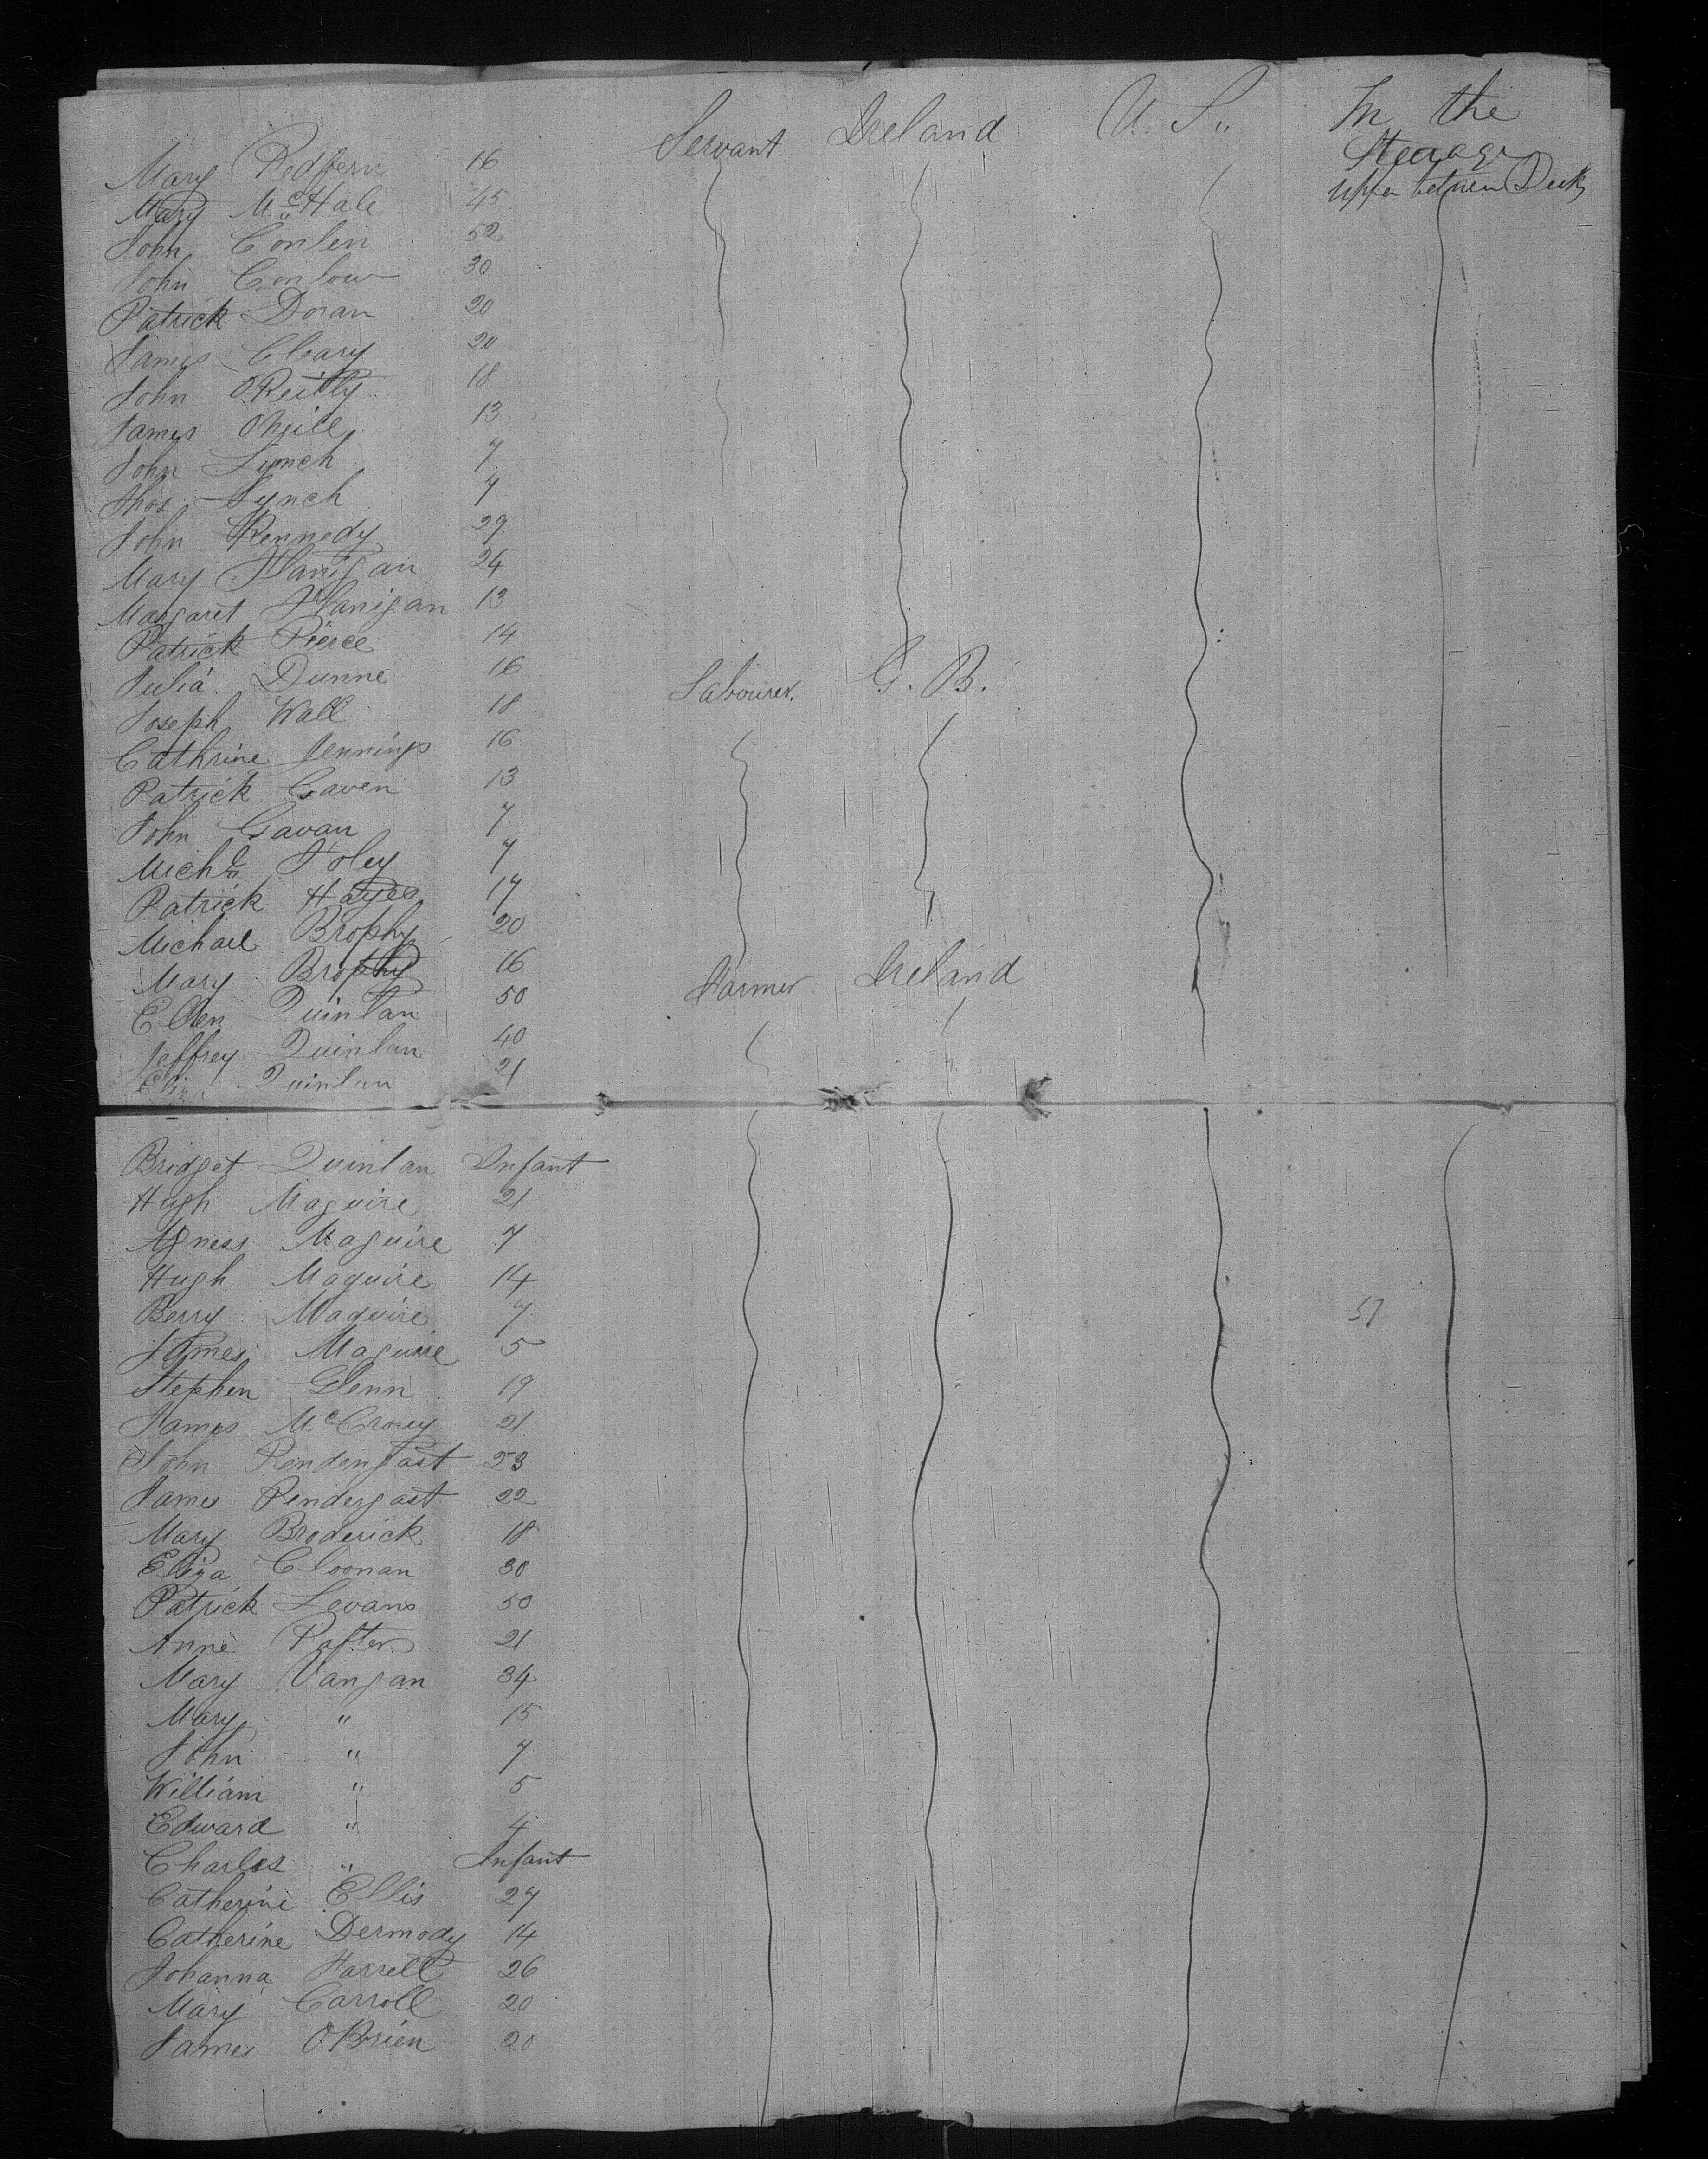 Mary Redfern 16 Servant Ireland U. S. In the Steerage
Mary McHale 45 upper between Decks
John Conlen 52
John Conlow 30
Patrick Doran 20
James Cleary 20
John O'Reilly 18
James O'Neill 13
John Lynch 7
Thos Lynch 7
John Kennedy 29
Mary Flanigan 24
Margaret Flanigan 13
Patrick Pierce 14
Julia Dunne 16
Joseph Wall 18 Labourer. G. B.
Cathrine Jennings 16
Patrick Gaven 13
John Gavan 7
Michl Foley 7
Patrick Hayes 17
Michael Brophy 20
Mary Brophy 16
Ellen Quinlan 50 Farmer Ireland
Jeffrey Quinlan 40
Eliza Quinlan 21
Bridget Quinlan Infant
Hugh Maguire 21
Agness Maguire 7
Hugh Maguire 14
Berry Maguire 7 51
James Maguire 5
Stephen Glenn 19
James McCrorey 21
John Pendengast 23
James Pendergast 22
Mary Broderick 18
Eliza Cloonan 30
Patrick Levans 50
Anne Rafter 21
Mary Vangan 34
Mary " 15
John " 7
William " 5
Edward " 4
Charles " Infant
Catherine Ellis 27
Catherine Dermody 14
Johanna Farrell 26
Mary Carroll 20
James O'Brien 20